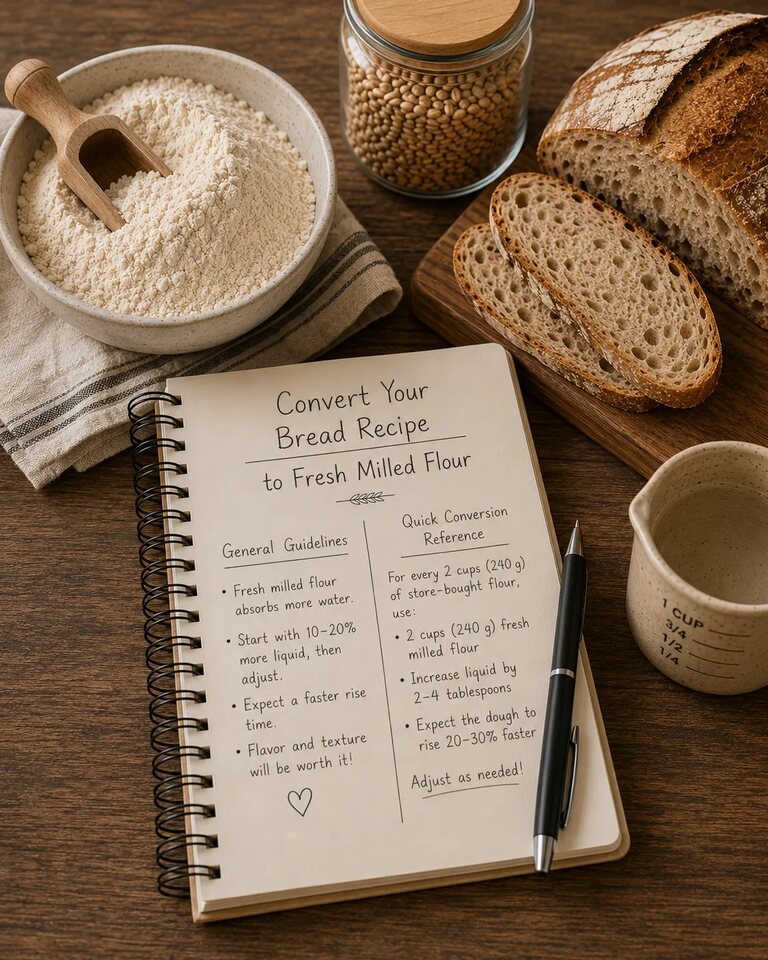 Convert Your
Bread Recipe
to Fresh Milled Flour
General Guidelines
• Fresh milled flour
absorbs more water.
• Start with 10–20%
more liquid, then
adjust.
• Expect a faster rise
time.
• Flavor and texture
will be worth it!
Quick Conversion
Reference
For every 2 cups (240 g)
of store-bought flour,
use:
• 2 cups (240 g) fresh
milled flour
• Increase liquid by
2–4 tablespoons
• Expect the dough to
rise 20–30% faster
Adjust as needed!
1 CUP
3/4
1/2
1/4